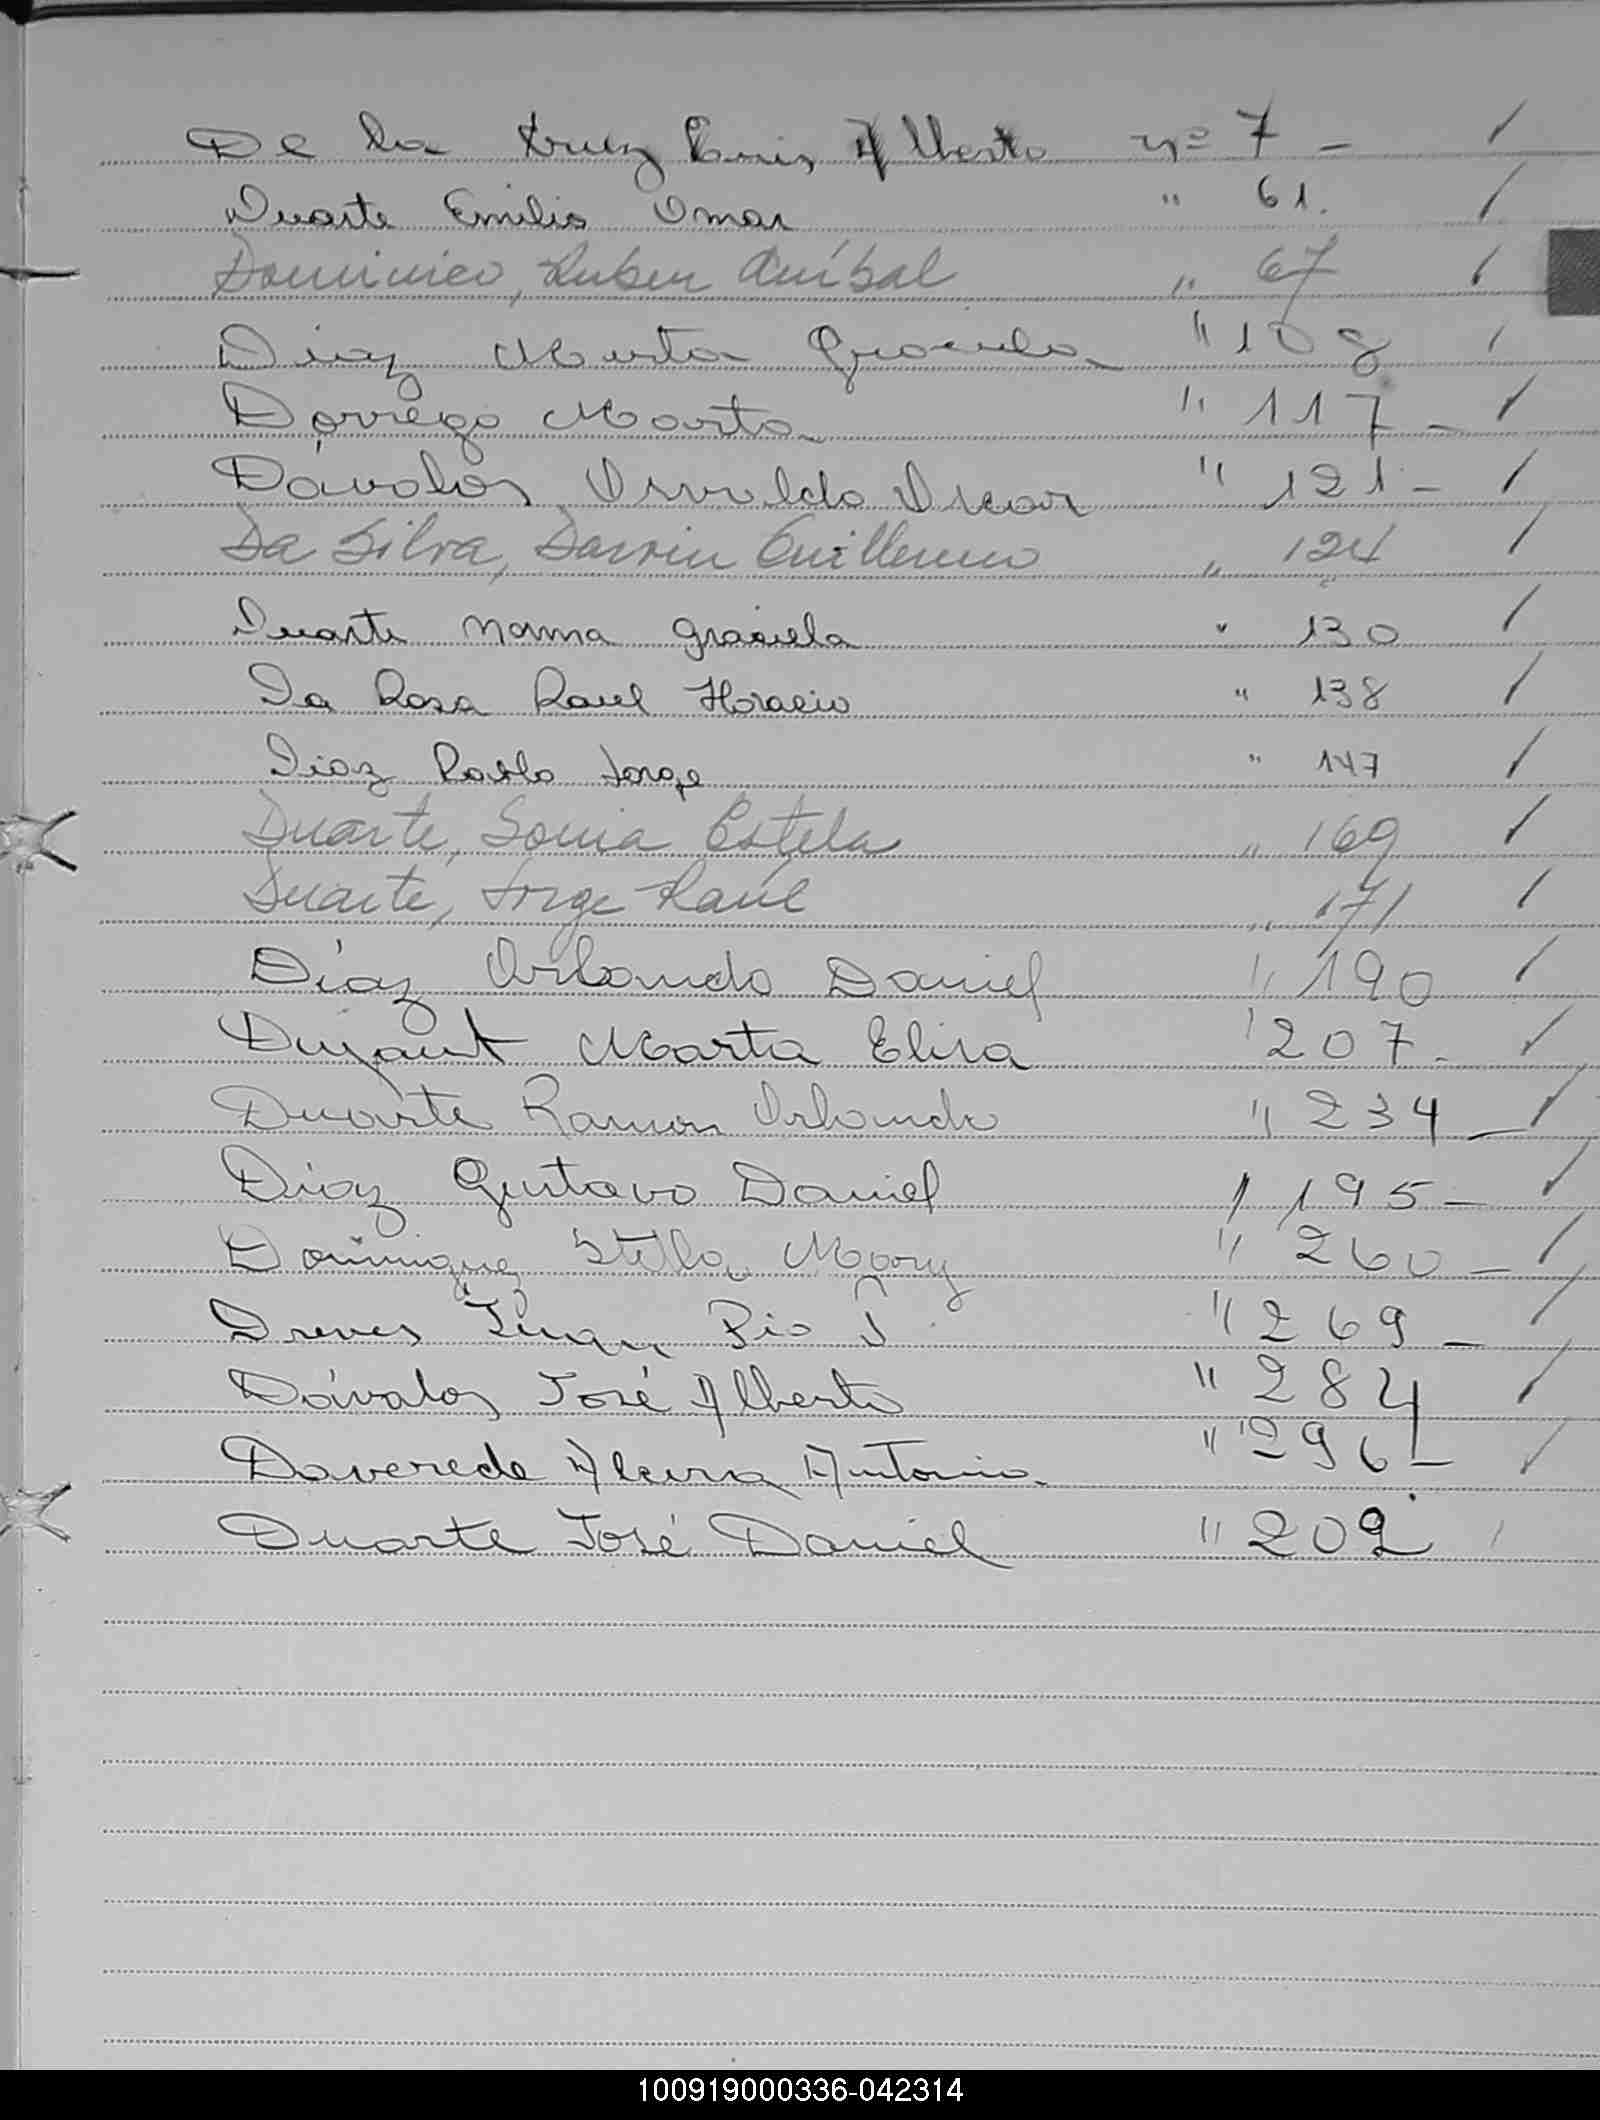 De la Cruz Luis Alberto nº 7 -
Duarte Emilio Omar " 61.
Dominico, Ruben Aníbal " 67
Diaz Mirta Graciela " 108
Dorrego Marta " 117 -
Dávalos Osvaldo Oscar " 121 -
Da Silva, Darwin Guillermo " 124
Duarte Norma Graciela " 130
Da Rosa Raul Horacio " 138
Diaz Pablo Jorge " 147
Duarte, Sonia Estela " 169
Duarte, Jorge Raúl " 171
Díaz Orlando Daniel " 190
Marta Elisa " 207 -
Duarte Ramon Orlando " 234 -
Diaz Gustavo Daniel " 195 -
Dominguez Stella Mary " 260 -
Dreves Pio " 269 -
Dávalos José Alberto " 284
Daverede Antonio " 296 -
Duarte José Daniel " 202
100919000336-042314